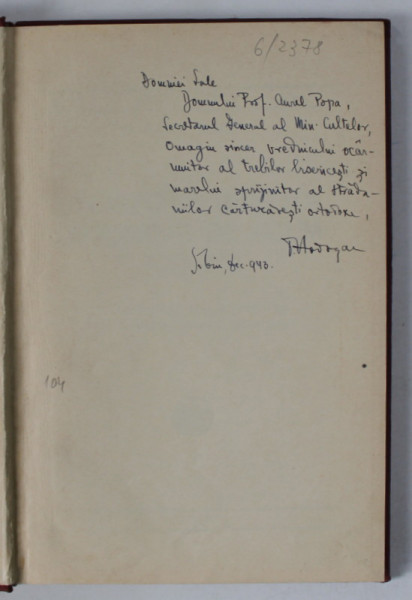 6/2378
Domniei Sale
Domnului Prof. Aurel Popa,
Secretarul General al Min. Cultelor,
Omagiu sincer vrednicului ocâr-
muitor al trebilor bisericești și
marelui sprijinitor al strădu-
niilor cărturărești ortodoxe,
T. Bodogae
Sibiu, Dec. 943.
104